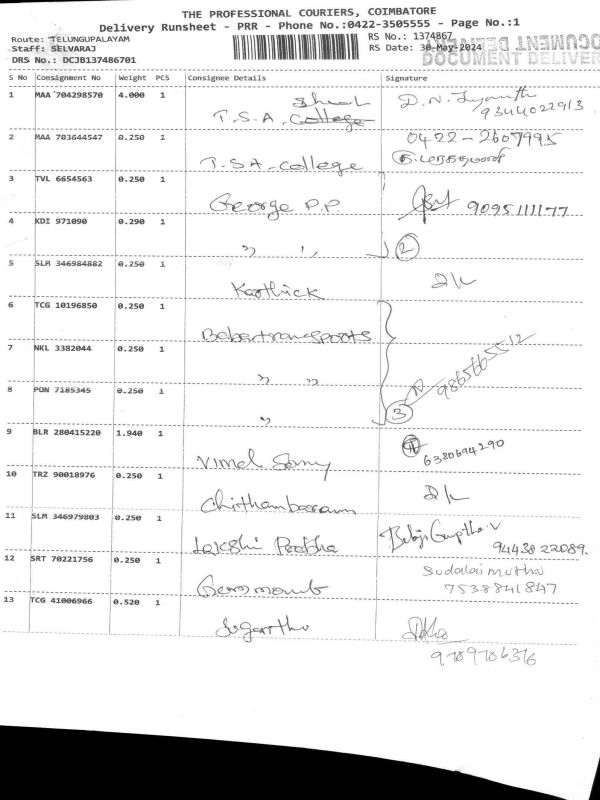 THE PROFESSIONAL COURIERS, COIMBATORE
Delivery Runsheet - PRR - Phone No.:0422-3505555 - Page No.:1
Route: TELUNGUPALAYAM
RS No.: 1374867
Staff: SELVARAJ
RS Date: 30-May-2024
DRS No.: DCJB137486701
DOCUMENT DELIVERY
S No Consignment No Weight PCS Consignee Details Signature
1 MAA 704298570 4.000 1
T.S.A. College
9344022913
2 MAA 703644547 0.250 1
0422-2607995
T.S.A. College
3 TVL 6654563 0.250 1
George P.P.
9095111177
4 KDI 971090 0.290 1
" "
2
5 SLM 346984882 0.250 1
Karthick
6 TCG 10196850 0.250 1
7 NKL 3382044 0.250 1
" "
9865665512
8 PON 7185345 0.250 1
"
3
9 BLR 280415220 1.940 1
Vimal Samy
6380694290
10 TRZ 90018976 0.250 1
11 SLM 346979803 0.250 1
Balaji Guptha.V
94438 22089.
12 SRT 70221756 0.250 1
Sudalaimuthu
7538841847
13 TCG 41006966 0.520 1
9789786376